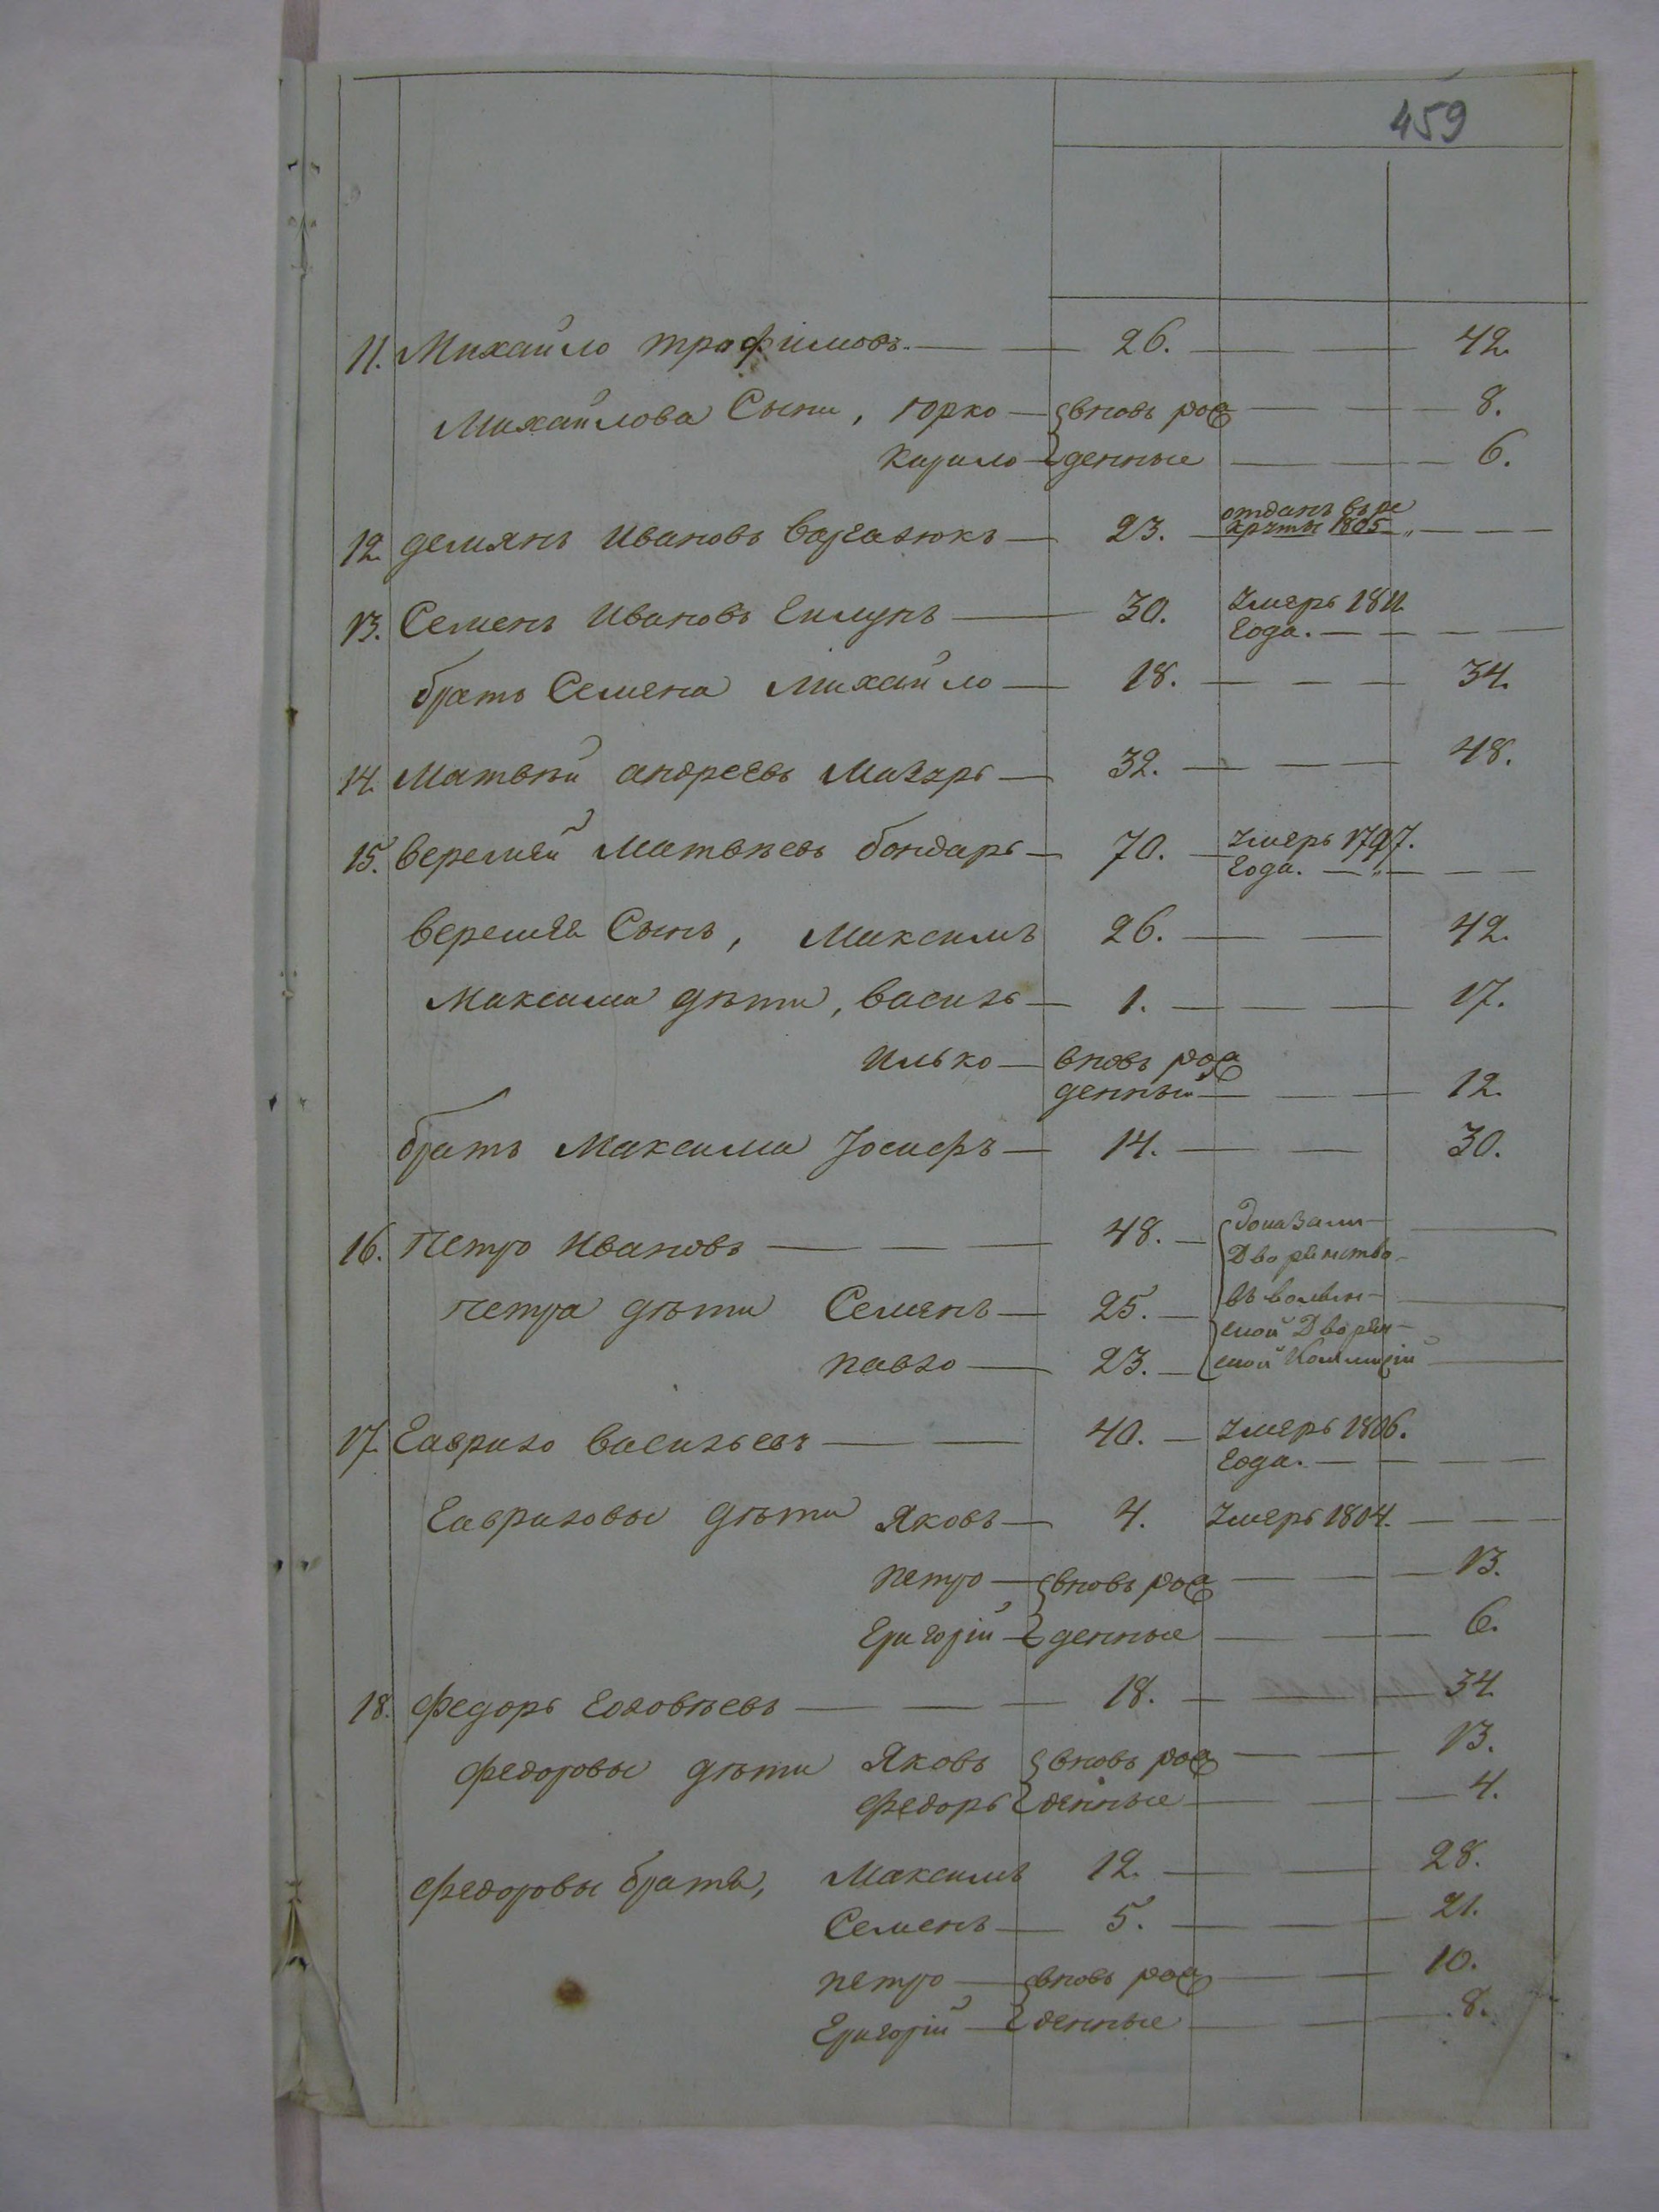 459
11. Михайло трофимовъ — 26. — 42.
Михайлова Сыны, юрко — вновь рож — 8.
Кирило — денные — 6.
12. демянъ Ивановъ — 23. отданъ въ ре
круты 1805 —
13. Семенъ Ивановъ — 30. Умеръ 1811
Года. —
братъ Семена Михайло — 18. — 34.
14. Матвѣй андреевъ Мазуръ — 32. — 48.
15. веремѣй Матвѣевъ бондарь — 70. — Умеръ 1797.
Года. —
веремѣя Сынъ, Максимъ 26. — 42.
Максима дѣти, василь — 1. — 17.
Илько — вновь рож
денный — 12.
братъ Максима Іосифъ — 14. — 30.
16. Петро Ивановъ — 48. — доказали —
Дворянство —
Петра дѣти Семенъ — 25. — въ волын —
ской Дворян —
павло — 23. — ской Коммисіи —
17. Гаврило васильевъ — 40. — Умеръ 1806.
Года. —
Гавриловы дѣти Яковъ — 4. Умеръ 1804. —
петро — вновь рож — 13.
Григорій — денные — 6.
18. Федоръ — 18. — 34.
Федоровы дѣти Яковъ вновь рож — 13.
Федоръ денные — 4.
Федоровы братья, Максимъ 12. — 28.
Семенъ — 5. — 21.
петро — вновь рож — 10.
Григорій — денные — 8.